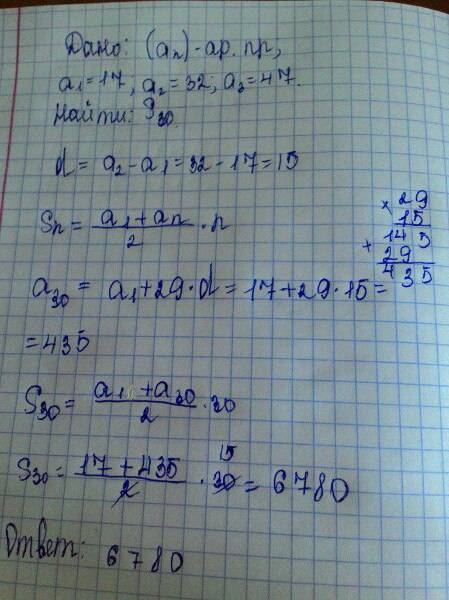 Дано: (an)-ар. пр,
a1=17, a2=32; a3=47.
Найти: S30
d = a2-a1=32-17=15
Sn = a1+an/2 · n
× 29
15
+ 145
29
435
a30 = a1+29·d=17+29·15=
=435
S30= a1+a30/2 ·30
S30= 17+435/2 · 30 15 = 6780
Ответ: 6780